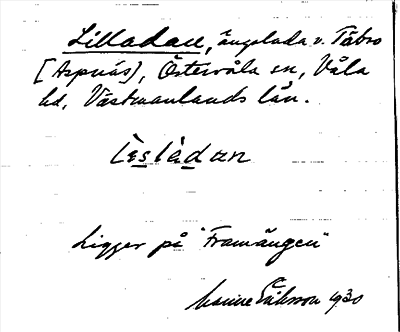 Lilladan, ängslada v. Täbro
(Aspnäs), Östervåla sn, Våla
hd, Västmanlands län.
Lìslàdan
Ligger på "Framängen"
Eriksson 1930